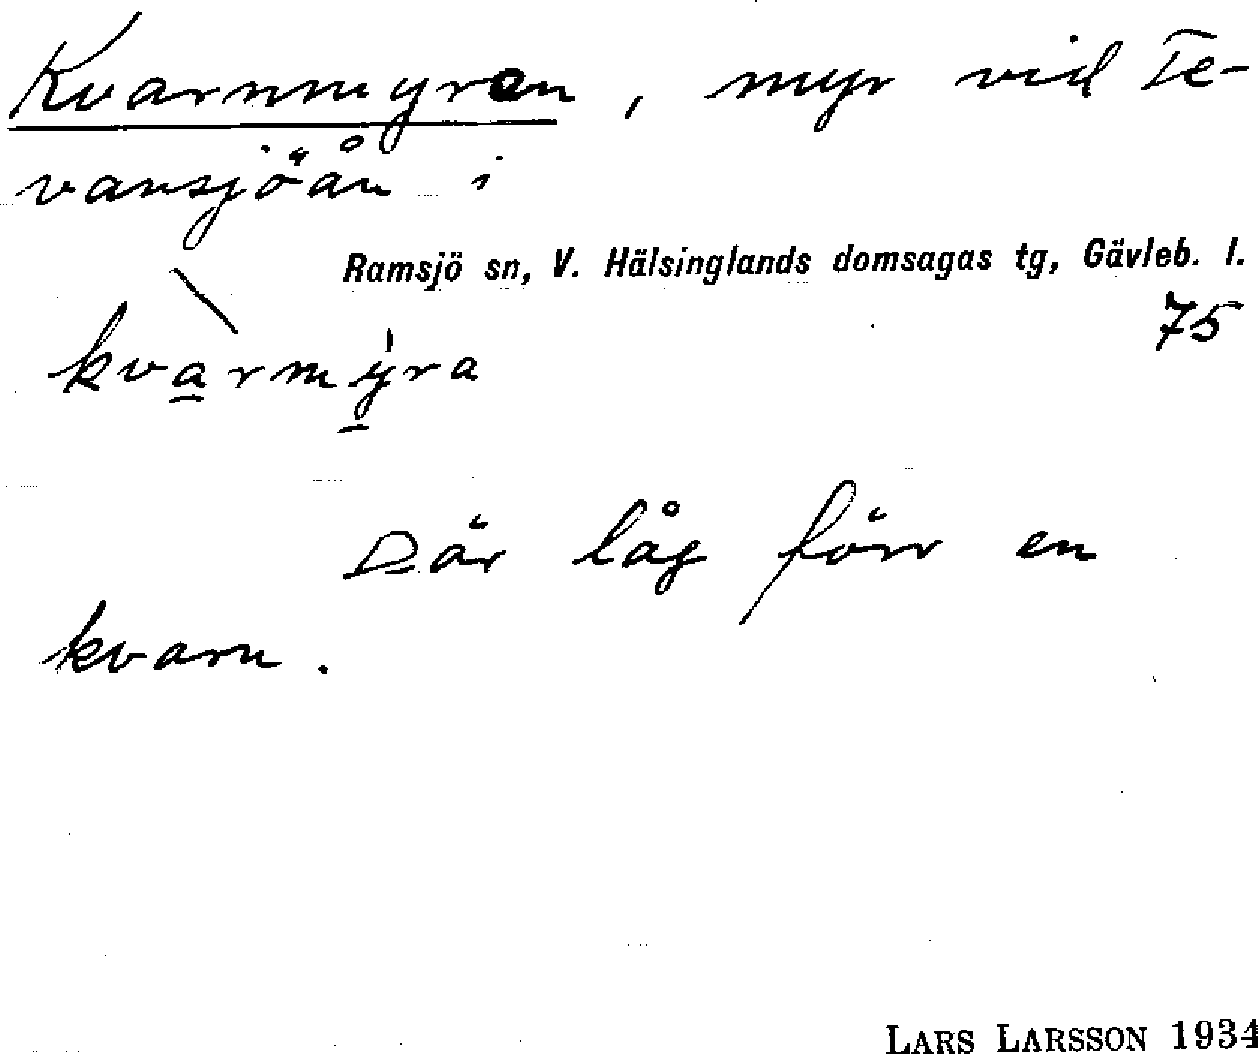 Kvarnmyren, myr vid Te-
vansjöån i
Ramsjö sn, V. Hälsinglands domsagas tg, Gävleb. l.
75
kvàrmýra
Där låg förr en
kvarn.
LARS LARSSON 1934